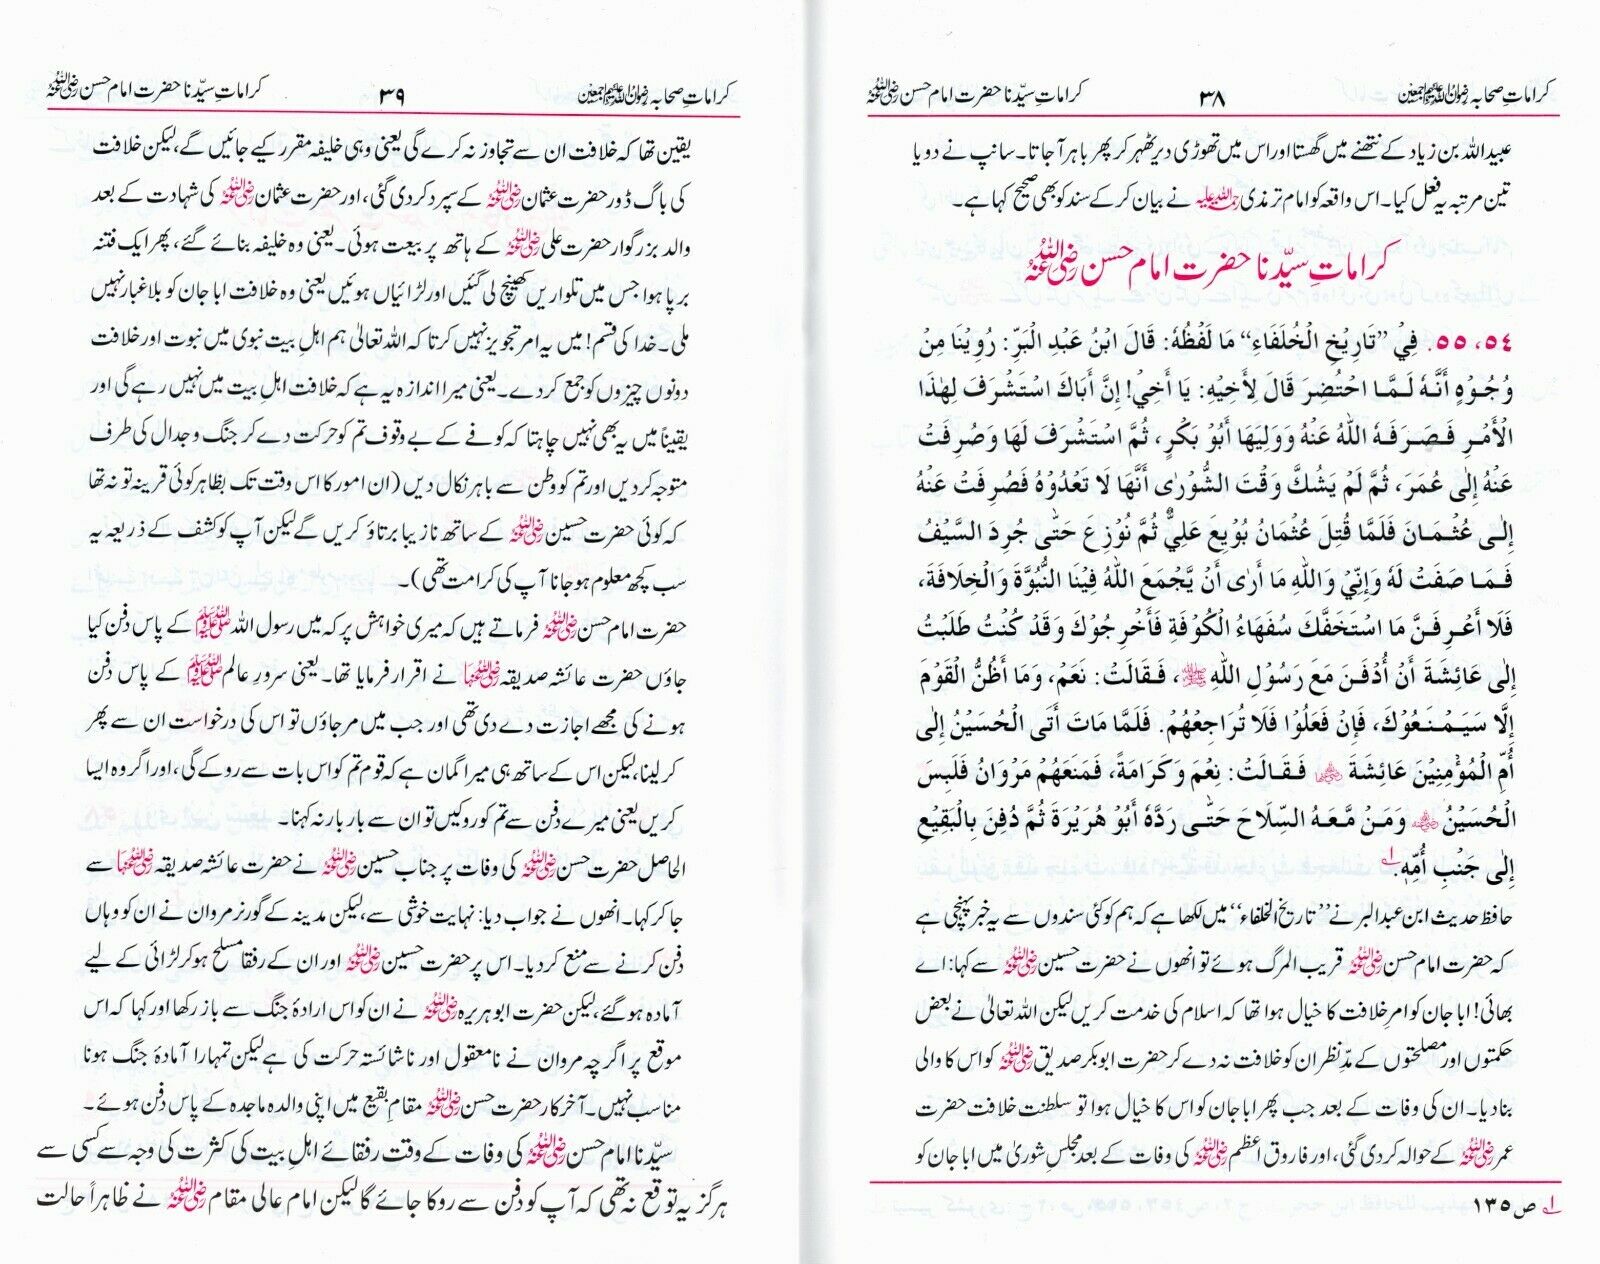 کراماتِ صحابہ رضوان اللہ علیہم اجمعین ۳۸ کراماتِ سیّدنا حضرت امام حسن رضی اللہ عنہ
عبید اللہ بن زیاد کے نتھنے میں گھستا اور اس میں تھوڑی دیر ٹھہر کر پھر باہر آجاتا۔ سانپ نے دو یا
تین مرتبہ یہ فعل کیا۔ اس واقعہ کو امام ترمذی رحمۃ اللہ علیہ نے بیان کر کے سند کو بھی صحیح کہا ہے۔
کراماتِ سیّدنا حضرت امام حسن رضی اللہ عنہ
٥٤، ٥٥. فِيْ ”تَارِيْخِ الْخُلَفَاءِ“ مَا لَفْظُهٗ: قَالَ ابْنُ عَبْدِ الْبَرِّ: رُوِيْنَا مِنْ
وُجُوْهٍ أَنَّهٗ لَـمَّـا احْتُضِرَ قَالَ لِأَخِيْهِ: يَا أَخِيْ! إِنَّ أَبَاكَ اسْتَشْرَفَ لِهٰذَا
الْأَمْرِ فَصَرَفَهُ اللّٰهُ عَنْهُ وَوَلِيَهَا أَبُوْ بَكْرٍ، ثُمَّ اسْتَشْرَفَ لَهَا وَصُرِفَتْ
عَنْهُ إِلٰى عُمَرَ، ثُمَّ لَمْ يَشُكَّ وَقْتَ الشُّوْرٰى أَنَّهَا لَا تَعْدُوْهُ فَصُرِفَتْ عَنْهُ
إِلٰى عُثْمَانَ فَلَمَّا قُتِلَ عُثْمَانُ بُوْيِعَ عَلِيٌّ ثُمَّ نُوْزِعَ حَتّٰى جُرِدَ السَّيْفُ
فَمَا صَفَتْ لَهٗ وَإِنِّيْ وَاللّٰهِ مَا أَرٰى أَنْ يَّجْمَعَ اللّٰهُ فِيْنَا النُّبُوَّةَ وَالْخِلَافَةَ،
فَلَا أَعْرِفَنَّ مَا اسْتَخَفَّكَ سُفَهَاءُ الْكُوْفَةِ فَأَخْرِجُوْكَ وَقَدْ كُنْتُ طَلَبْتُ
إِلٰى عَائِشَةَ أَنْ أُدْفَنَ مَعَ رَسُوْلِ اللّٰهِ ﷺ، فَقَالَتْ: نَعَمْ، وَمَا أَظُنُّ الْقَوْمَ
إِلَّا سَيَمْنَعُوْكَ، فَإِنْ فَعَلُوْا فَلَا تُرَاجِعْهُمْ. فَلَمَّا مَاتَ أَتَى الْحُسَيْنُ إِلٰى
أُمِّ الْمُؤْمِنِيْنَ عَائِشَةَ رضی اللہ عنہا فَقَالَتْ: نِعْمَ وَكَرَامَةً، فَمَنَعَهُمْ مَرْوَانُ فَلَبِسَ
الْحُسَيْنُ رضی اللہ عنہ وَمَنْ مَّعَهُ السِّلَاحَ حَتّٰى رَدَّهٗ أَبُوْ هُرَيْرَةَ ثُمَّ دُفِنَ بِالْبَقِيْعِ
إِلٰى جَنْبِ أُمِّهٖ. ۱؎
حافظ حدیث ابن عبد البر نے ’’تاریخ الخلفاء‘‘ میں لکھا ہے کہ ہم کو کئی سندوں سے یہ خبر پہنچی ہے
کہ حضرت امام حسن رضی اللہ عنہ قریب المرگ ہوئے تو انھوں نے حضرت حسین رضی اللہ عنہ سے کہا: اے
بھائی! ابا جان کو امرِ خلافت کا خیال ہوا تھا کہ اسلام کی خدمت کریں لیکن اللہ تعالیٰ نے بعض
حکمتوں اور مصلحتوں کے مدِّ نظر ان کو خلافت نہ دے کر حضرت ابوبکر صدیق رضی اللہ عنہ کو اس کا والی
بنا دیا۔ ان کی وفات کے بعد جب پھر ابا جان کو اس کا خیال ہوا تو سلطنت خلافت حضرت
عمر رضی اللہ عنہ کے حوالہ کر دی گئی، اور فاروق اعظم رضی اللہ عنہ کی وفات کے بعد مجلسِ شوریٰ میں ابا جان کو
۱؎ ص ۱۳۵
کراماتِ صحابہ رضوان اللہ علیہم اجمعین ۳۹ کراماتِ سیّدنا حضرت امام حسن رضی اللہ عنہ
یقین تھا کہ خلافت ان سے تجاوز نہ کرے گی یعنی وہی خلیفہ مقرر کیے جائیں گے، لیکن خلافت
کی باگ ڈور حضرت عثمان رضی اللہ عنہ کے سپرد کر دی گئی، اور حضرت عثمان رضی اللہ عنہ کی شہادت کے بعد
والد بزرگوار حضرت علی رضی اللہ عنہ کے ہاتھ پر بیعت ہوئی۔ یعنی وہ خلیفہ بنائے گئے، پھر ایک فتنہ
برپا ہوا جس میں تلواریں کھینچ لی گئیں اور لڑائیاں ہوئیں یعنی وہ خلافت ابا جان کو بلا غبار نہیں
ملی۔ خدا کی قسم! میں یہ امر تجویز نہیں کرتا کہ اللہ تعالیٰ ہم اہلِ بیت نبوی میں نبوت اور خلافت
دونوں چیزوں کو جمع کر دے۔ یعنی میرا اندازہ یہ ہے کہ خلافت اہلِ بیت میں نہیں رہے گی اور
یقیناً میں یہ بھی نہیں چاہتا کہ کوفے کے بے وقوف تم کو حرکت دے کر جنگ و جدال کی طرف
متوجہ کر دیں اور تم کو وطن سے باہر نکال دیں (ان امور کا اس وقت تک بظاہر کوئی قرینہ تو نہ تھا
کہ کوئی حضرت حسین رضی اللہ عنہ کے ساتھ نازیبا برتاؤ کریں گے لیکن آپ کو کشف کے ذریعہ یہ
سب کچھ معلوم ہو جانا آپ کی کرامت تھی)۔
حضرت امام حسن رضی اللہ عنہ فرماتے ہیں کہ میری خواہش پر کہ میں رسول اللہ ﷺ کے پاس دفن کیا
جاؤں حضرت عائشہ صدیقہ رضی اللہ عنہا نے اقرار فرمایا تھا۔ یعنی سرورِ عالم ﷺ کے پاس دفن
ہونے کی مجھے اجازت دے دی تھی اور جب میں مرجاؤں تو اس کی درخواست ان سے پھر
کر لینا، لیکن اس کے ساتھ ہی میرا گمان ہے کہ قوم تم کو اس بات سے روکے گی، اور اگر وہ ایسا
کریں یعنی میرے دفن سے تم کو روکیں تو ان سے بار بار نہ کہنا۔
الحاصل حضرت حسن رضی اللہ عنہ کی وفات پر جناب حسین رضی اللہ عنہ نے حضرت عائشہ صدیقہ رضی اللہ عنہا سے
جا کر کہا۔ انھوں نے جواب دیا: نہایت خوشی سے، لیکن مدینہ کے گورنر مروان نے ان کو وہاں
دفن کرنے سے منع کر دیا۔ اس پر حضرت حسین رضی اللہ عنہ اور ان کے رفقا مسلح ہو کر لڑائی کے لیے
آمادہ ہو گئے، لیکن حضرت ابو ہریرہ رضی اللہ عنہ نے ان کو اس ارادۂ جنگ سے باز رکھا اور کہا کہ اس
موقع پر اگر چہ مروان نے نامعقول اور ناشائستہ حرکت کی ہے لیکن تمہارا آمادۂ جنگ ہونا
مناسب نہیں۔ آخر کار حضرت حسن رضی اللہ عنہ مقام بقیع میں اپنی والدہ ماجدہ کے پاس دفن ہوئے۔
سیّدنا امام حسن رضی اللہ عنہ کی وفات کے وقت رفقائے اہلِ بیت کی کثرت کی وجہ سے کسی سے
ہرگز یہ توقع نہ تھی کہ آپ کو دفن سے روکا جائے گا لیکن امام عالی مقام رضی اللہ عنہ نے ظاہراً حالت